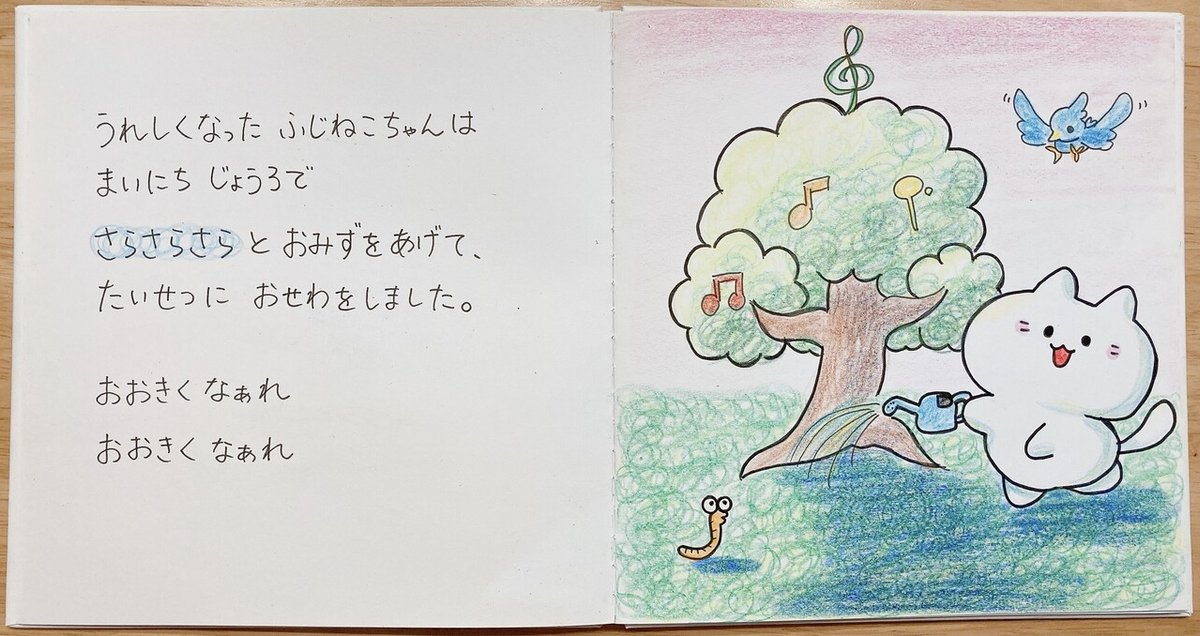 うれしくなった ふじねこちゃんは
まいにち じょうろで
さらさらさら と おみずをあげて、
たいせつに おせわをしました。
おおきく なぁれ
おおきく なぁれ